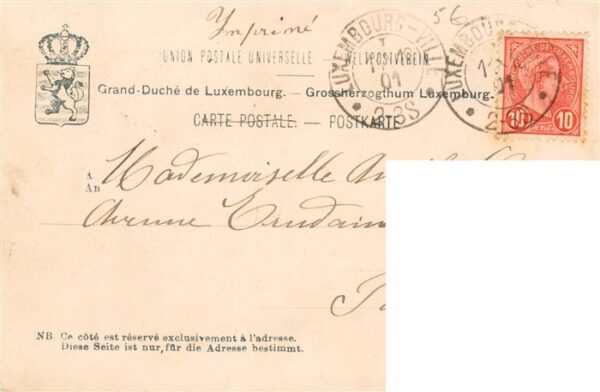 Imprimé
56
UNION POSTALE UNIVERSELLE WELTPOSTVEREIN
Grand-Duché de Luxembourg. — Grossherzogthum Luxemburg.
CARTE POSTALE. — POSTKARTE
LUXEMBOURG-VILLE
01
2-3S
LUXEMBOURG
GR. DUCHÉ DE LUXEMBOURG
10 10
A
An
Mademoiselle
Avenue Trudain
NB Ce côté est réservé exclusivement à l'adresse.
Diese Seite ist nur, für die Adresse bestimmt.